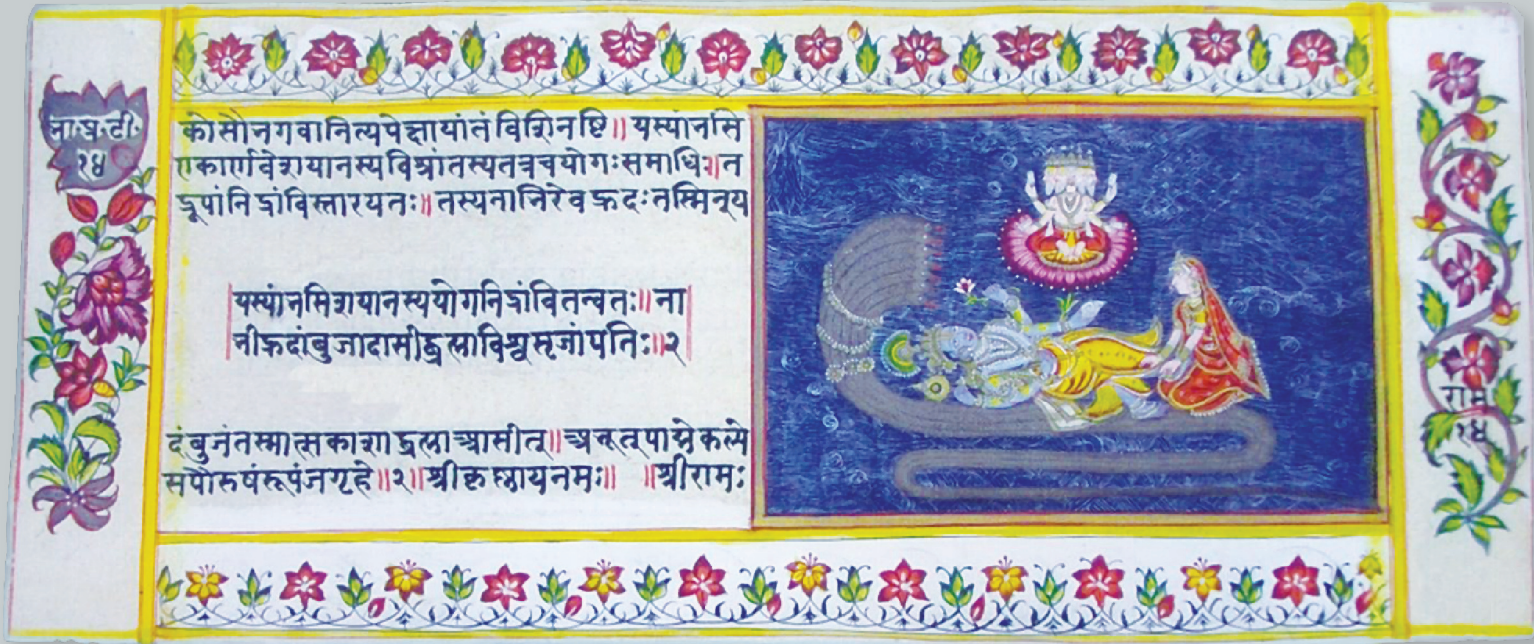 भा.प्र.टी.
१४
कोसौभगवानित्यपेक्षायांतंविशिनष्टि॥ यस्यांभसि
एकार्णवेशयानस्यविश्रांतस्यतत्रचयोगःसमाधिः॥त
द्रूपांनिद्रांविस्तारयतः॥तस्यनाभिरेवह्रदःतस्मिन्य
यस्यांभसिशयानस्ययोगनिद्रांवितन्वतः॥ना
भीह्रदांबुजादासीद्ब्रह्माविश्वसृजांपतिः॥२
दंबुजंतस्मात्सकाशाद्ब्रह्माआसीत्॥अभूत्पाद्मेकल्पे
सपौरुषंरूपंजगृहे॥२॥श्रीकृष्णायनमः॥ ॥श्रीरामः
राम
१४